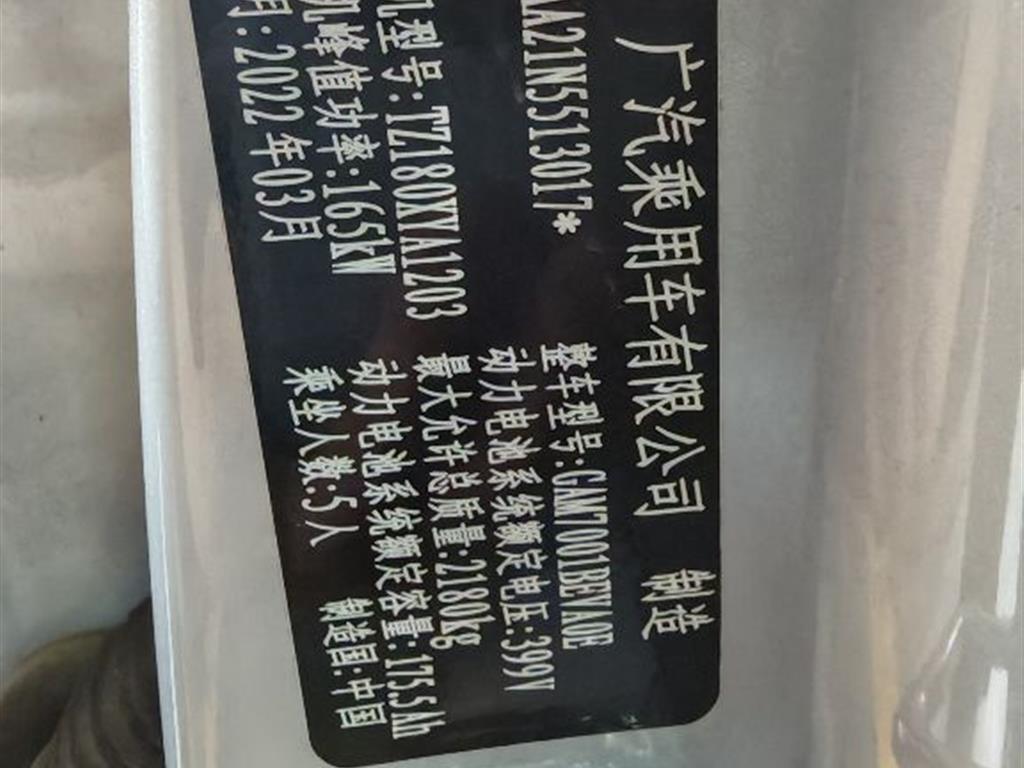 广汽乘用车有限公司 制造
AA21N5513017*
整车型号:GAM7001BEVA0E
机型号:TZ180XYA1203
动力电池系统额定电压:399V
机峰值功率:165kW
最大允许总质量:2180kg
月:2022年03月
动力电池系统额定容量:175.5Ah
乘坐人数:5人
制造国:中国